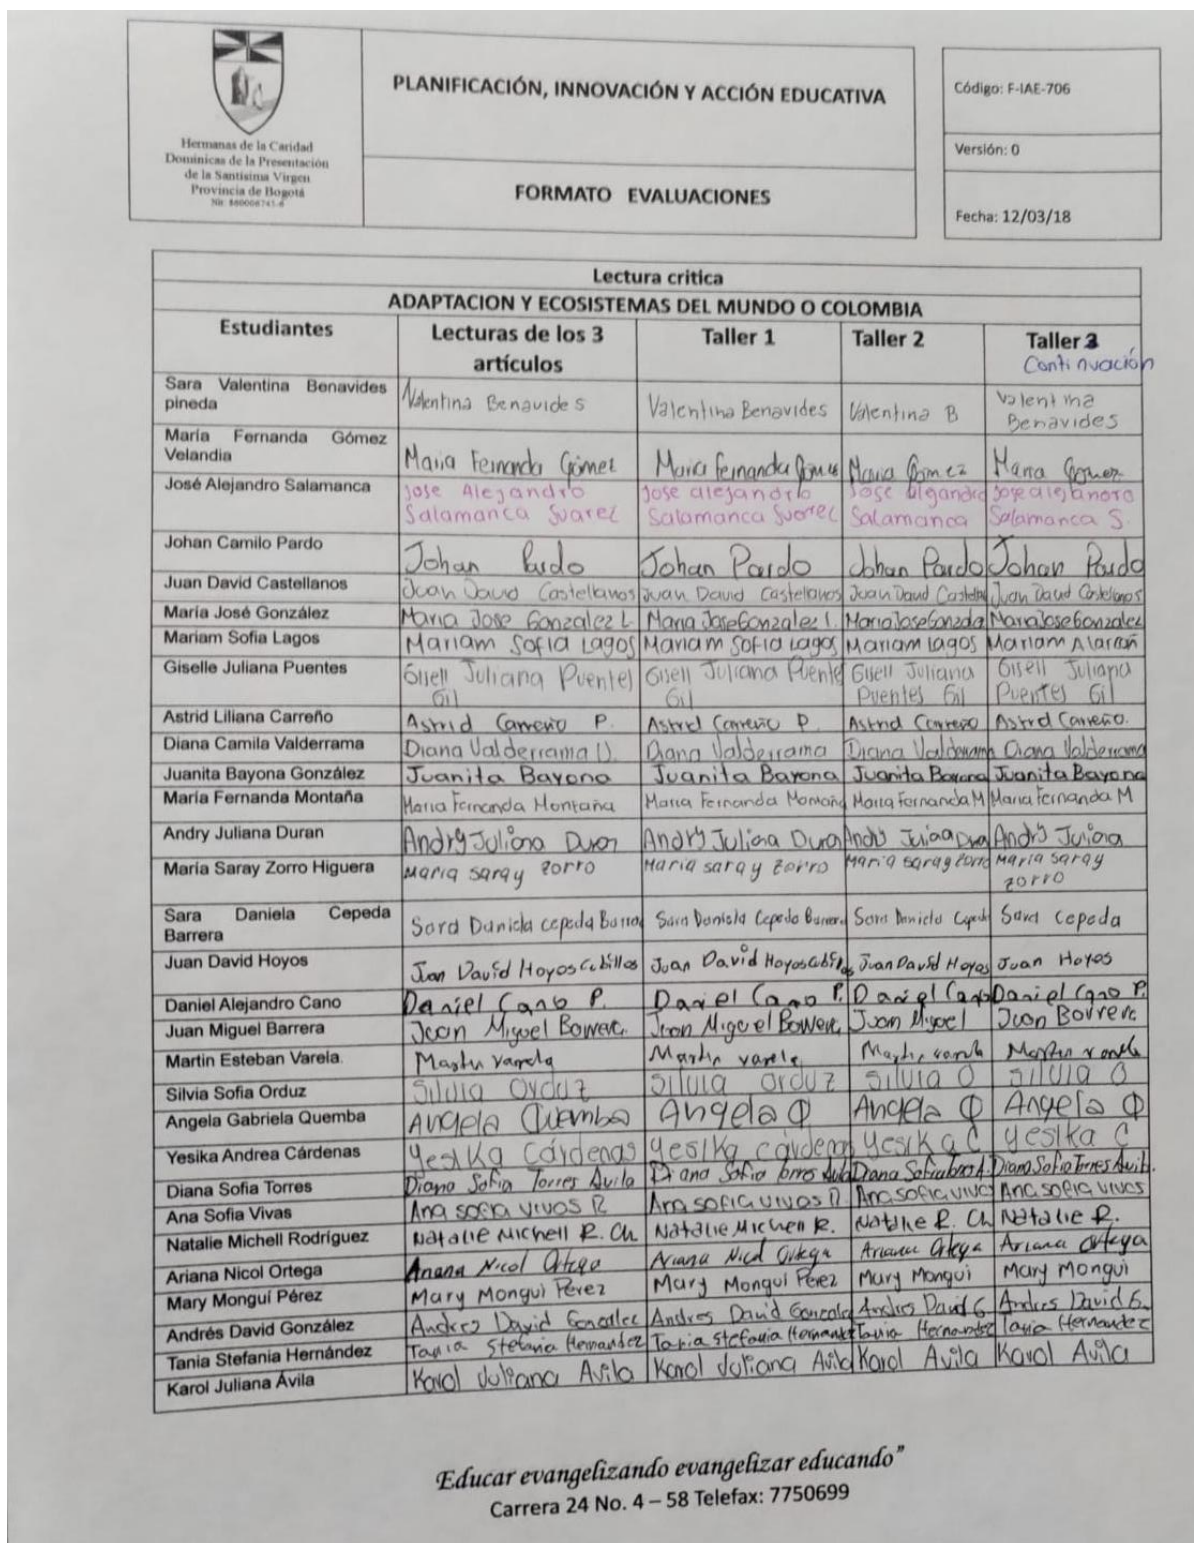 Hermanas de la Caridad
Dominicas de la Presentación
de la Santísima Virgen
Provincia de Bogotá
PLANIFICACIÓN, INNOVACIÓN Y ACCIÓN EDUCATIVA
FORMATO EVALUACIONES
Código: F-IAE-706
Versión: 0
Fecha: 12/03/18
Lectura critica
ADAPTACION Y ECOSISTEMAS DEL MUNDO O COLOMBIA
Estudiantes Lecturas de los 3 artículos Taller 1 Taller 2 Taller 3 Continuación
Sara Valentina Benavides pineda Valentina Benavides Valentina Benavides Valentina B Valentina Benavides
María Fernanda Gómez Velandia Maria Fernanda Gómez Maria Fernanda Gómez Maria Gómez Maria Gómez
José Alejandro Salamanca Jose Alejandro Salamanca Suarez Jose alejandro Salamanca Suarez Jose alejandro Salamanca Jose alejandro Salamanca S.
Johan Camilo Pardo Johan Pardo Johan Pardo Johan Pardo Johan Pardo
Juan David Castellanos Juan David Castellanos Juan David Castellanos Juan David Castellanos Juan David Castellanos
María José González Maria Jose Gonzalez L Maria Jose Gonzalez L. Maria Jose Gonzalez Maria Jose Gonzalez
Mariam Sofia Lagos Mariam Sofia Lagos Mariam Sofia Lagos Mariam Lagos Mariam Alarcón
Giselle Juliana Puentes Gisell Juliana Puentes Gil Gisell Juliana Puentes Gil Gisell Juliana Puentes Gil Gisell Juliana Puentes Gil
Astrid Liliana Carreño Astrid Carreño P. Astrid Carreño P. Astrid Carreño Astrid Carreño.
Diana Camila Valderrama Diana Valderrama D. Diana Valderrama Diana Valderrama Diana Valderrama
Juanita Bayona González Juanita Bayona Juanita Bayona Juanita Bayona Juanita Bayona
María Fernanda Montaña Maria Fernanda Montaña Maria Fernanda Montaña Maria Fernanda M Maria Fernanda M
Andry Juliana Duran Andry Juliana Duran Andry Juliana Duran Andry Juliana Duran Andry Juliana
María Saray Zorro Higuera Maria saray zorro Maria saray zorro Maria saray zorro Maria saray zorro
Sara Daniela Cepeda Barrera Sara Daniela cepeda Barrera Sara Daniela Cepeda Barrera Sara Daniela Cepeda Sara Cepeda
Juan David Hoyos Juan David Hoyos Cubillos Juan David Hoyos Cubillos Juan David Hoyos Juan Hoyos
Daniel Alejandro Cano Daniel Cano P. Daniel Cano P. Daniel Cano Daniel Cano P.
Juan Miguel Barrera Juan Miguel Barrera Juan Miguel Barrera Juan Miguel Juan Barrera
Martin Esteban Varela Martin varela Martin varela Martin varela Martin varela
Silvia Sofia Orduz Silvia Orduz Silvia Orduz Silvia O Silvia O
Angela Gabriela Quemba Angela Quemba Angela Q Angela Q Angela Q
Yesika Andrea Cárdenas Yesika Cárdenas Yesika cárdenas Yesika C Yesika C
Diana Sofia Torres Diana Sofia Torres Avila Diana Sofia Torres Avila Diana Sofia Torres A. Diana Sofia Torres Avila.
Ana Sofia Vivas Ana sofia vivas R Ana sofia vivas R Ana sofia vivas Ana sofia vivas
Natalie Michell Rodríguez Natalie Michell R. Ch Natalie Michell R. Natalie R. Ch Natalie R.
Ariana Nicol Ortega Ariana Nicol Ortega Ariana Nicol Ortega Ariana Ortega Ariana Ortega
Mary Monguí Pérez Mary Mongui Pérez Mary Mongui Pérez Mary Mongui Mary Mongui
Andrés David González Andres David Gonzalez Andres David Gonzalez Andres David G Andres David G.
Tania Stefania Hernández Tania Stefania Hernandez Tania Stefania Hernandez Tania Hernandez Tania Hernandez
Karol Juliana Ávila Karol Juliana Avila Karol Juliana Avila Karol Avila Karol Avila
Educar evangelizando evangelizar educando"
Carrera 24 No. 4 – 58 Telefax: 7750699